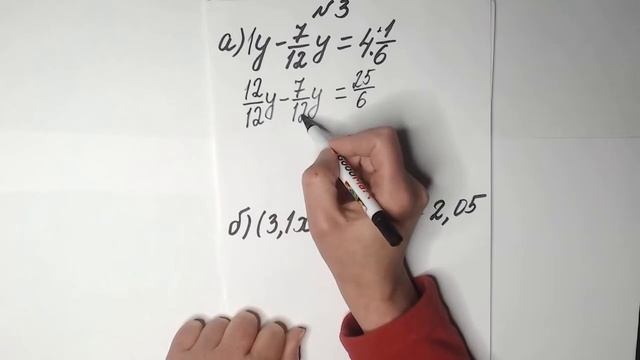 №3
а) 1y - 7/12 y = 4 1/6
12/12 y - 7/12 y = 25/6
б) (3,1x = 2,05